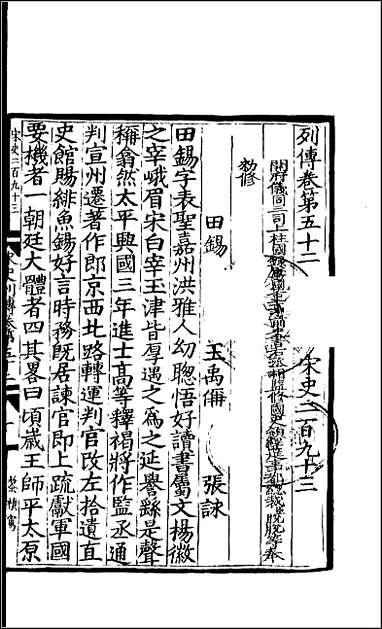 列傳卷第五十二　宋史二百九十三
開府儀同三司上柱國錄軍國重事前中書右丞相監修國史領經筵事都總裁脫脫等奉
敕修
田錫　王禹偁　張詠
田錫字表聖嘉州洪雅人幼聰悟好讀書屬文楊徽
之宰峨眉宋白宰玉津皆厚遇之爲之延譽繇是聲
稱翕然太平興國三年進士高等釋褐將作監丞通
判宣州遷著作郎京西北路轉運判官改左拾遺直
史館賜緋魚錫好言時務既居諫官即上疏獻軍國
要機者一朝廷大體者四其畧曰頃歲王師平太原
宋史二百九十三
宋史列傳卷第五十二
一